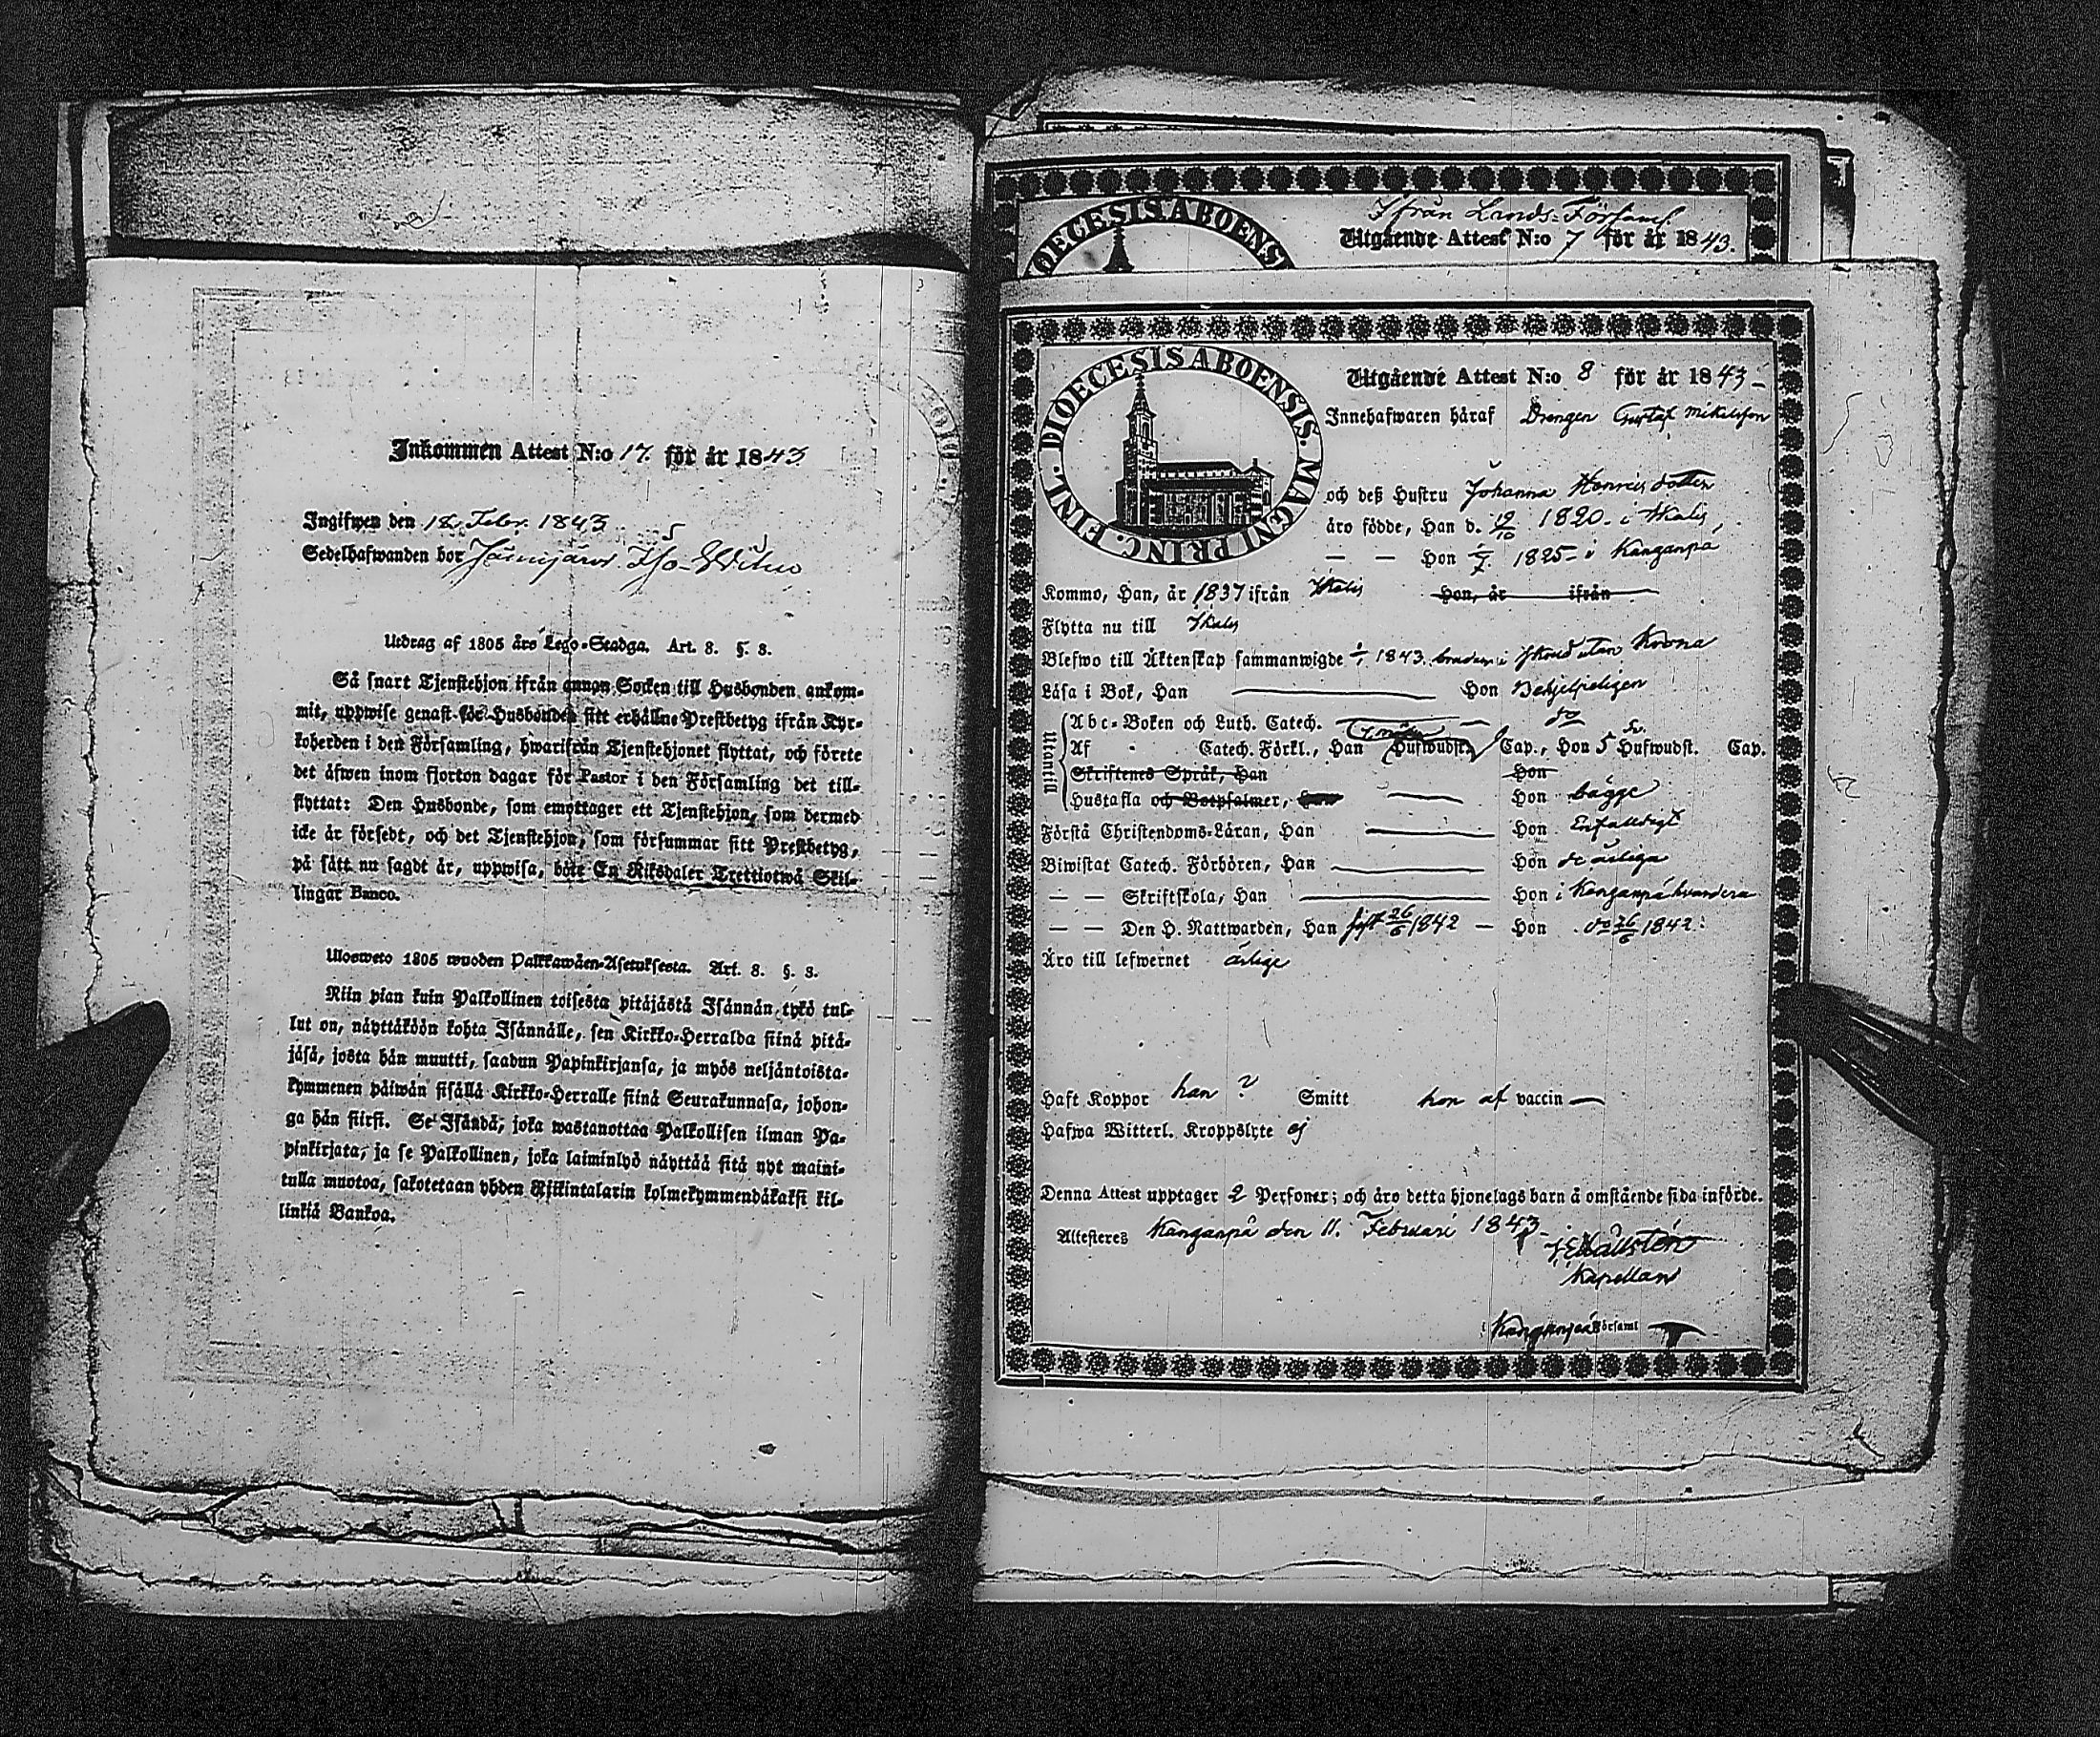 Inkommen Attest N:o 17. för år 1843.
Ingifwen den 18. Febr. 1843
Sedelhafwanden bor Jämijärvi Iso-
Utdrag af 1805 års Lego-Stadga. Art. 8. §. 8.
Så snart Tjenstehjon ifrån annan Socken till Husbonden ankom-
mit, uppwise genast för Husbonden sitt erhållne Prestbetyg ifrån Kyr-
koherden i den Församling, hwarifrån Tjenstehjonet flyttat, och förete
det äfwen inom fjorton dagar för Pastor i den Församling det till-
flyttat: Den Husbonde, som emottager ett Tjenstehjon, som dermed
icke är försedt, och det Tjenstehjon, som försummar sitt Prestbetyg,
på sätt nu sagdt är, uppwisa, böte En Riksdaler Trettiotwå Skil-
lingar Banco.
Ulosweto 1805 wuoden Palkkawäen-Asetuksesta. Art. 8. §. 8.
Niin pian kuin Palkollinen toisesta pitäjästä Isännän tykö tul-
lut on, näyttäköön kohta Isännälle, sen Kirkko-Herralda siinä pitä-
jäsä, josta hän muutti, saadun Papinkirjansa, ja myös neljäntoista-
kymmenen päiwän sisällä Kirkko-Herralle siinä Seurakunnasa, johon-
ga hän siirsi. Se Isändä, joka wastanottaa Palkollisen ilman Pa-
pinkirjata, ja se Palkollinen, joka laiminlyö näyttää sitä nyt maini-
tulla muotoa, sakotetaan yhden Riikintalarin kolmekymmendäkaksi kil-
linkiä Bankoa.
Ifrån Lands-Församl
Utgående Attest N:o 7 för år 1843.
DIOECESIS ABOENSIS
DIOECESIS ABOENSIS. MAGNI PRINC. FINL.
Utgående Attest N:o 8 för år 1843
Innehafwaren häraf Drengen Gustaf Mikelsson
och deß Hustru Johanna Henricsdotter
äro födde, Han d. 19/10 1820 i Ikalis,
— — Hon 1825 i Kanganpä
Kommo, Han, år 1837 ifrån Ikalis Hon, år ifrån
Flytta nu till Ikalis
Blefwo till Äktenskap sammanwigde 1843. bruden i skrud utan Krona
Läsa i Bok, Han — Hon Behjelpeligen
Utantill
Abc-Boken och Luth. Catech. — do
Af Catech. Förkl., Han Hufwudst. Cap., Hon 5 Hufwudst. Cap.
Skriftenes Språk, Han Hon
Hustafla och Botpsalmer, — Hon bägge
Förstå Christendoms-Läran, Han — Hon Enfalldigt
Biwistat Catech. Förhören, Han — Hon de årliga
— — Skriftskola, Han — Hon i Kanganpä
— — Den H. Nattwarden, Han sist 26/6 1842 — Hon do 26/6 1842.
Äro till lefwernet ärlige
Haft Koppor han ? Smitt hon af vaccin —
Hafwa Witterl. Kroppslyte ej
Denna Attest upptager 2 Personer; och äro detta hjonelags barn å omstående sida införde.
Attesteres Kanganpä den 11. Februari 1843.
Kapellan
i Kanganpää Församl